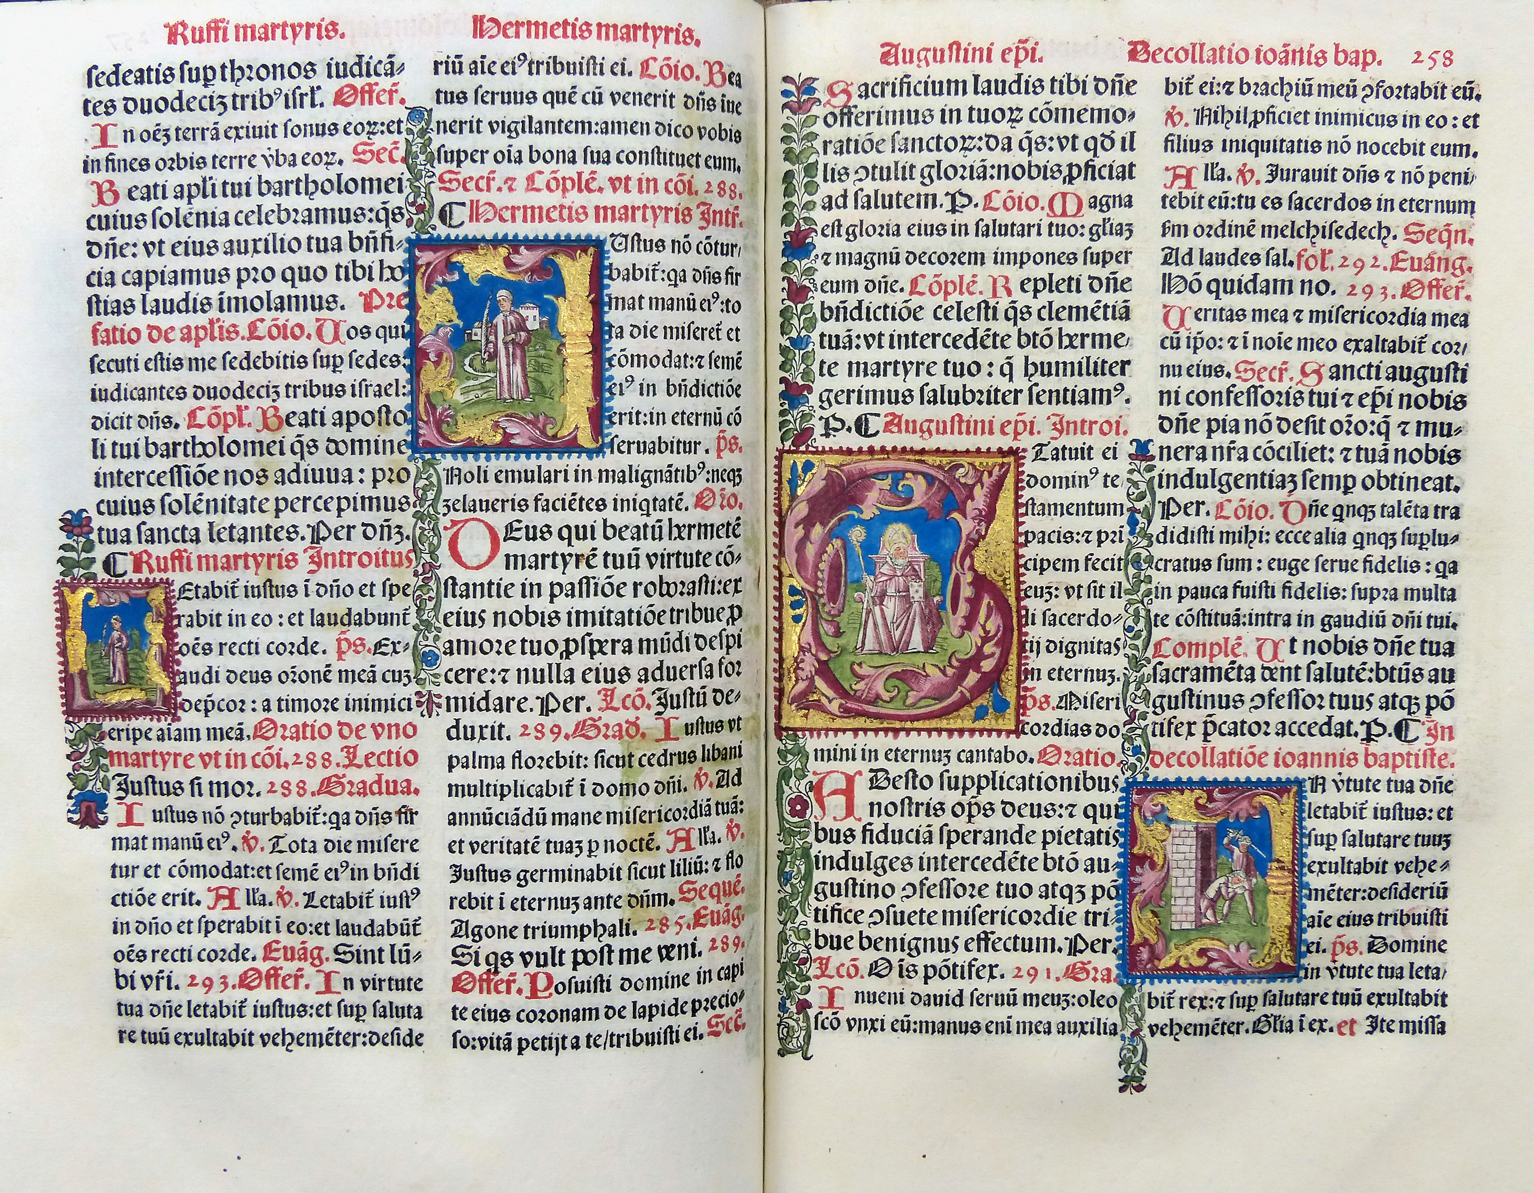 Ruffi martyris.
Hermetis martyris.
sedeatis sup thronos iudicā⸗
tes duodeciꝫ trib⁹ isrl̄. Offer̄.
In oēꝫ terrā exiuit sonus eoꝝ: et
in fines orbis terre v̄ba eoꝝ. Sec̄.
Beati apl̄i tui bartholomei
cuius solēnia celebramus: q̄s
dn̄e: vt eius auxilio tua bn̄fi⸗
cia capiamus pro quo tibi ho
stias laudis īmolamus. Pre
fatio de apl̄is. Cōio. Uos qui
secuti estis me sedebitis sup sedes:
iudicantes duodeciꝫ tribus israel:
dicit dn̄s. Cōpl̄. Beati aposto
li tui bartholomei q̄s domine
intercessiōe nos adiuua: pro
cuius solēnitate percepimus
tua sancta letantes. Per dn̄ꝫ.
C Ruffi martyris Introitus
Letabit̄ iustus ī dn̄o et spe
rabit in eo: et laudabunt̄
oēs recti corde. p̄s. Ex⸗
audi deus orōnē meā cuꝫ
dep̄cor: a timore inimici
eripe aīam meā. Oratio de vno
martyre vt in cōi. 288. Lectio
Justus si mor. 288. Gradua.
Iustus nō ꝯturbabit̄: qa dn̄s fir
mat manū ei⁹. ℣. Tota die misere
tur et cōmodat: et semē ei⁹ in bn̄di
ctiōe erit. Alla. ℣. Letabit̄ iust⁹
in dn̄o et sperabit ī eo: et laudabūt̄
oēs recti corde. Euāg. Sint lū⸗
bi vr̄i. 293. Offer̄. In virtute
tua dn̄e letabit̄ iustus: et sup saluta
re tuū exultabit vehemēter: deside
riū aīe ei⁹ tribuisti ei. Cōio. Bea
tus seruus quē cū venerit dn̄s iue
nerit vigilantem: amen dico vobis
super oīa bona sua constituet eum.
Secr̄. ⁊ Cōplē. vt in cōi. 288.
C Hermetis martyris Intr̄.
Iustus nō cōtur⸗
babit̄: qa dn̄s fir
mat manū ei⁹: to
ta die miseret̄ et
cōmodat: ⁊ semē
ei⁹ in bn̄dictiōe
erit: in eternū cō
seruabitur. p̄s.
Noli emulari in malignātib⁹: neqꝫ
zelaueris faciētes iniqtatē. Oro.
DEus qui beatū hermetē
martyrē tuū virtute cō⸗
stantie in passiōe roborasti: ex
eius nobis imitatiōe tribue ꝓ
amore tuo ꝓspera mūdi despi
cere: ⁊ nulla eius aduersa for
midare. Per. Lcō. Justū de⸗
duxit. 289. Grad̄. Iustus vt
palma florebit: sicut cedrus libani
multiplicabit̄ ī domo dn̄i. ℣. Ad
annūciādū mane misericordiā tuā:
et veritatē tuaꝫ ꝑ noctē. Alla. ℣.
Justus germinabit sicut liliū: ⁊ flo
rebit ī eternuꝫ ante dn̄m. Sequē.
Agone triumphali. 285. Euāg.
Si qs vult post me veni. 289.
Offer̄. Posuisti domine in capi
te eius coronam de lapide precio⸗
so: vitā petijt a te/tribuisti ei. Sec̄.
Augustini ep̄i.
Decollatio ioānis bap. 258
Sacrificium laudis tibi dn̄e
offerimus in tuoꝝ cōmemo⸗
ratiōe sanctoꝝ: da q̄s: vt qd̄ il
lis ꝯtulit gloriā: nobis ꝓficiat
ad salutem. P. Cōio. Magna
est gloria eius in salutari tuo: gl̄iaꝫ
⁊ magnū decorem impones super
eum dn̄e. Cōplē. Repleti dn̄e
bn̄dictiōe celesti q̄s clemētiā
tuā: vt intercedēte btō herme⸗
te martyre tuo: q̄ humiliter
gerimus salubriter sentiam⁹.
P. C Augustini ep̄i. Introi.
Statuit ei
domin⁹ te⸗
stamentum
pacis: ⁊ pri
cipem fecit
euꝫ: vt sit il
li sacerdo⸗
tij dignitas
in eternuꝫ.
p̄s. Miseri
cordias do
mini in eternuꝫ cantabo. Oratio.
ADesto supplicationibus
nostris op̄s deus: ⁊ qui
bus fiduciā sperande pietatis
indulges intercedēte btō au⸗
gustino ꝯfessore tuo atqꝫ pō
tifice ꝯsuete misericordie tri⸗
bue benignus effectum. Per.
Lcō. Ois pōtifex. 291. Gra.
Inueni dauid seruū meuꝫ: oleo
scō vnxi eū: manus eni mea auxilia
bit̄ ei: ⁊ brachiū meū ꝯfortabit eū.
℣. Nihil ꝓficiet inimicus in eo: et
filius iniquitatis nō nocebit eum.
Alla. ℣. Jurauit dn̄s ⁊ nō peni⸗
tebit eū: tu es sacerdos in eternum
s̄m ordinē melchisedech. Seqn̄.
Ad laudes sal. fol̄. 292. Euāng.
Hō quidam no. 293. Offer̄.
Ueritas mea ⁊ misericordia mea
cū ip̄o: ⁊ ī noīe meo exaltabit̄ cor⸗
nu eius. Secr̄. Sancti augusti
ni confessoris tui ⁊ ep̄i nobis
dn̄e pia nō desit oꝛo: q̄ ⁊ mu⸗
nera nr̄a cōciliet: ⁊ tuā nobis
indulgentiaꝫ semp obtineat.
Per. Cōio. Dn̄e qnqꝫ talēta tra
didisti mihi: ecce alia qnqꝫ suplu⸗
cratus sum: euge serue fidelis: qa
in pauca fuisti fidelis: supra multa
te cōstituā: intra in gaudiū dn̄i tui.
Complē. Ut nobis dn̄e tua
sacramēta dent salutē: btūs au
gustinus ꝯfessor tuus atqꝫ pō
tifex p̄cator accedat. P. C In
decollatiōe ioannis baptiste.
IN v̄tute tua dn̄e
letabit̄ iustus: et
sup salutare tuuꝫ
exultabit vehe⸗
mēter: desideriū
aīe eius tribuisti
ei. p̄s. Domine
in v̄tute tua leta⸗
bit̄ rex: ⁊ sup salutare tuū exultabit
vehemēter. Gl̄ia ī ex. et Ite missa